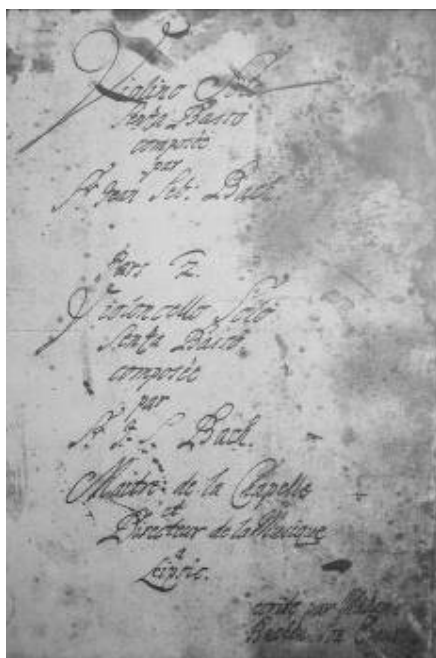 Violino Solo
Senza Basso
composée
par
Sr. Jean Seb: Bach.
Pars 2.
Violoncello Solo
Senza Basso.
composée
par
Sr. J. S. Bach.
Maitre de la Chapelle
et
Directeur de la Musique
a
Leipsic.
par Madame